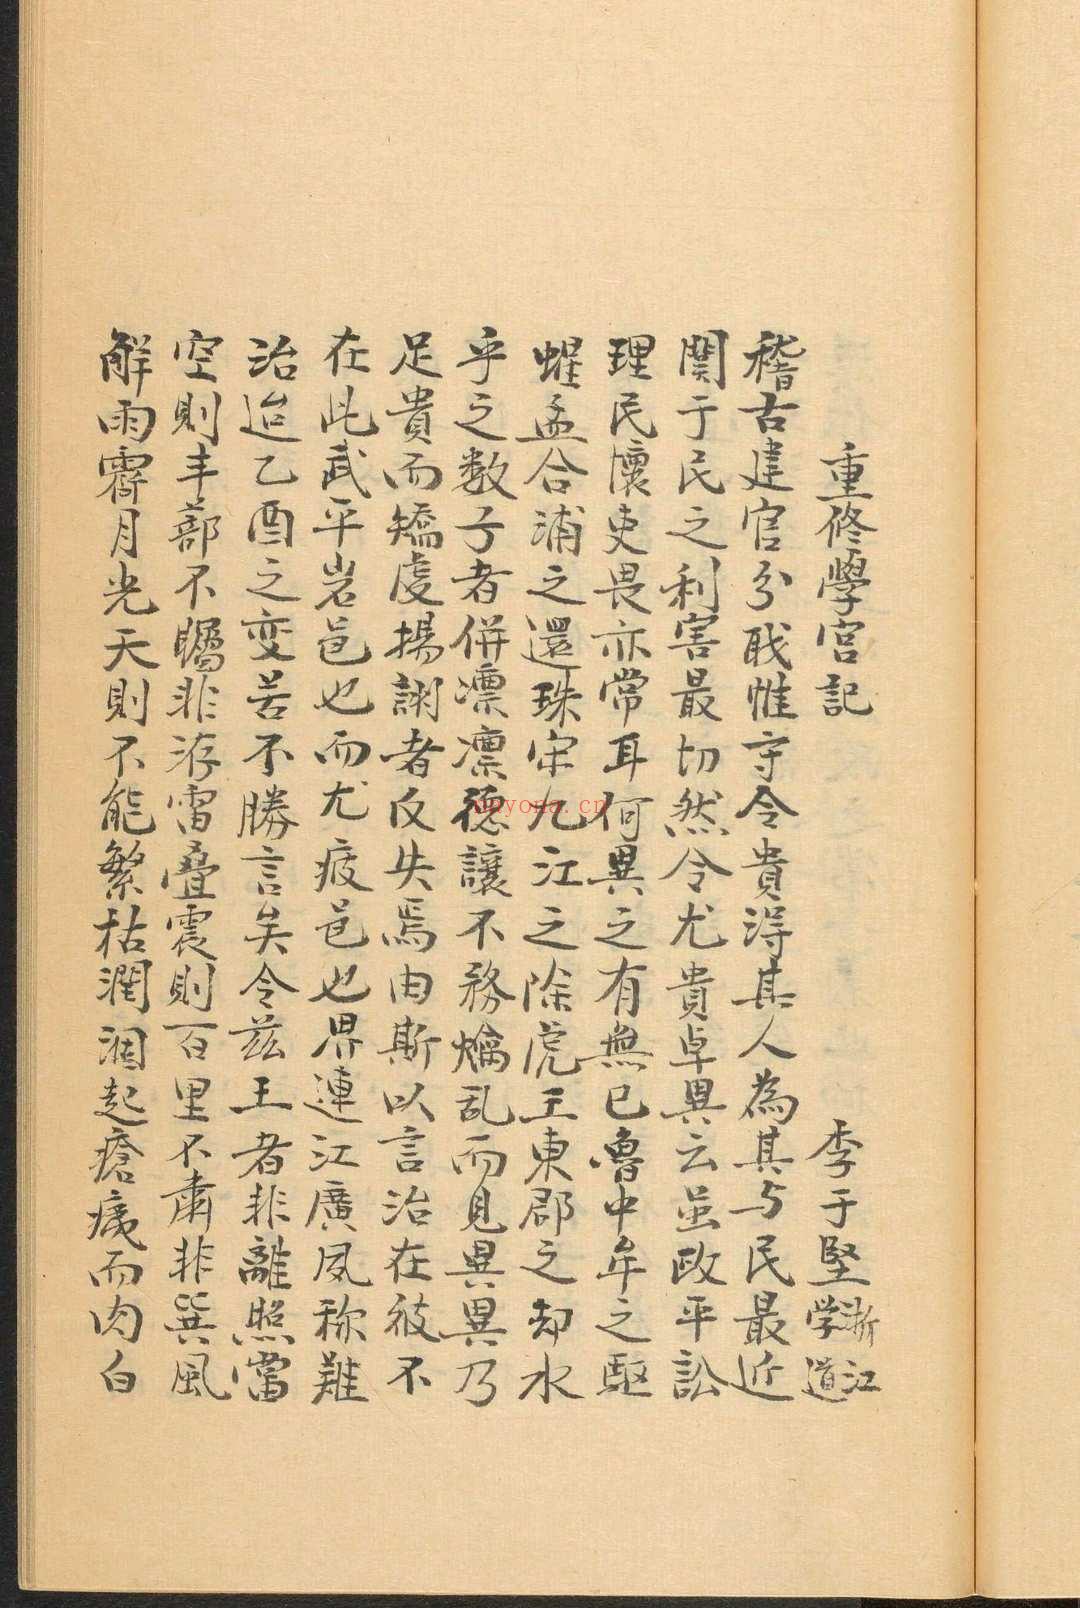 重修學宮記　李于堅浙江学道
稽古建官分职惟守令貴淂其人為其与民最近
関于民之利害最切然令尤貴卓異云虽政平訟
理民懷吏畏亦常耳何異之有無已魯中牟之駆
蝗孟合浦之還珠宋九江之除虎王東郡之却水
乎之数子者併凛凛德讓不務煽乱而見異異乃
足貴而矯虔揚詡者反失焉由斯以言治在彼不
在此武平岩邑也而尤疲邑也界連江廣夙称難
治迨乙酉之变苦不勝言矣令兹王者非離照當
空則丰蔀不矚非洊雷疊震則百里不肅非巽風
解雨霽月光天則不能繁枯潤涸起瘡痍而肉白
dayona.cn